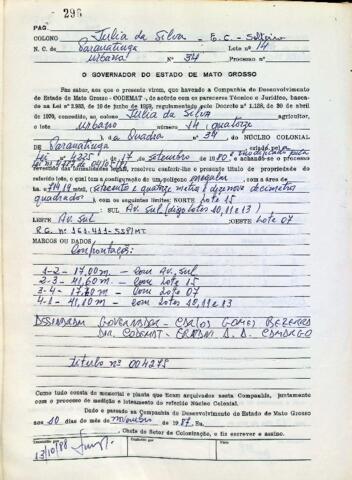 296
PAG.
COLONO Julia da Silva - E.C. - Solteiro
N. C. de Paranatinga Lote nº 14
Urbana Nº 34 Processo nº
O GOVERNADOR DO ESTADO DE MATO GROSSO
Faz saber, aos que o presente virem, que havendo a Companhia de Desenvolvimento
do Estado de Mato Grosso - CODEMAT -, de acôrdo com os pareceres Técnico e Jurídico, basea-
1970, concedido, ao colono Julia da Silva agricultor
lote Urbano nº 14 (quatorze
) a Quadra nº 34 do NÚCLEO COLONIAL
de Paranatinga criado pela
Lei nº 4225 17 de setembro de 1980
revestido das formalidades legais, resolveu conferir o presente título de propriedade do
referido lote, com a configuração de um polígono irregular, com a área de
m². 714,19 metros, setecento e quatorze metros e dezenove decimetros
quadrados), com os seguintes limites: NORTE Lote 15
SUL Av. Sul (digo Lotes 10, 11 e 13)
LESTE Av. Sul OESTE Lote 07
MARCOS OU DADOS
Confrontações:
1-2 - 17,00m. - com Av. Sul
2-3 - 41,60m. - com Lote 15
- com Lote 07
4-1 - 41,10m - com Lotes 10, 11 e 13
GOVERNADOR - CARLOS GOMES BEZERRA
CODEMAT -
Titulo nº 004275
Como tudo consta do memorial e planta que ficam arquivados nesta Companhia, juntamente
com o processo de medição e loteamento do referido Núcleo Colonial.
Dado e passado na Companhia de Desenvolvimento do Estado de Mato Grosso
aos 10 dias do mês de novembro de 1987. Eu,
, Chefe do Setor de Colonização, o fiz escrever e assino.
13/10/88